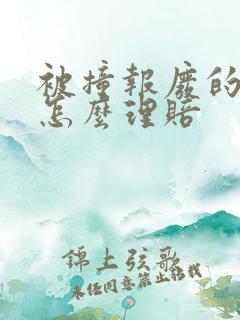 被撞報廢的
怎麼理賠
錦上弦歌
未經同意禁止轉載